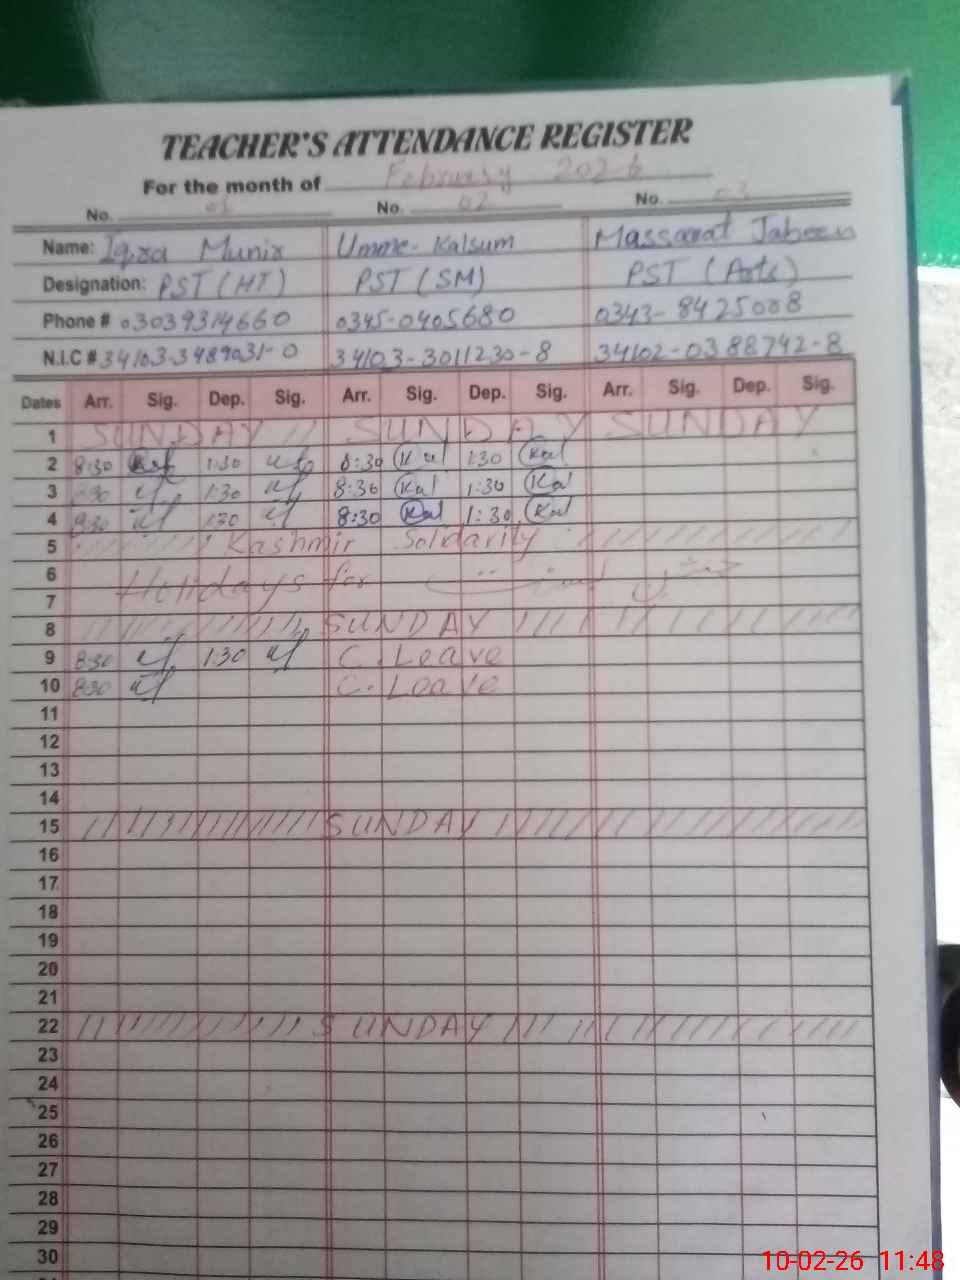 TEACHER'S ATTENDANCE REGISTER
For the month of February 2026
No. 01 No. 02 No. 03
Name: Iqra Munir Umme-Kalsum Massarat Jabeen
Designation: PST (HT) PST (SM) PST (Arts)
Phone # 03039314660 0345-0405680 0343-8425008
N.I.C # 34103-3489031-0 34103-3011230-8 34102-0388742-8
Dates Arr. Sig. Dep. Sig. Arr. Sig. Dep. Sig. Arr. Sig. Dep. Sig.
1 SUNDAY SUNDAY SUNDAY
2 8:30 1:30 8:30 Kal 1:30 Kal
3 8:30 1:30 8:30 Kal 1:30 Kal
4 8:30 1:30 8:30 Kal 1:30 Kal
5 Kashmir Solidarity
6 Holidays for
7
8 SUNDAY
9 8:30 1:30 C. Leave
10 8:30 C. Leave
11
12
13
14
15 SUNDAY
16
17
18
19
20
21
22 SUNDAY
23
24
25
26
27
28
29
30
10-02-26 11:48